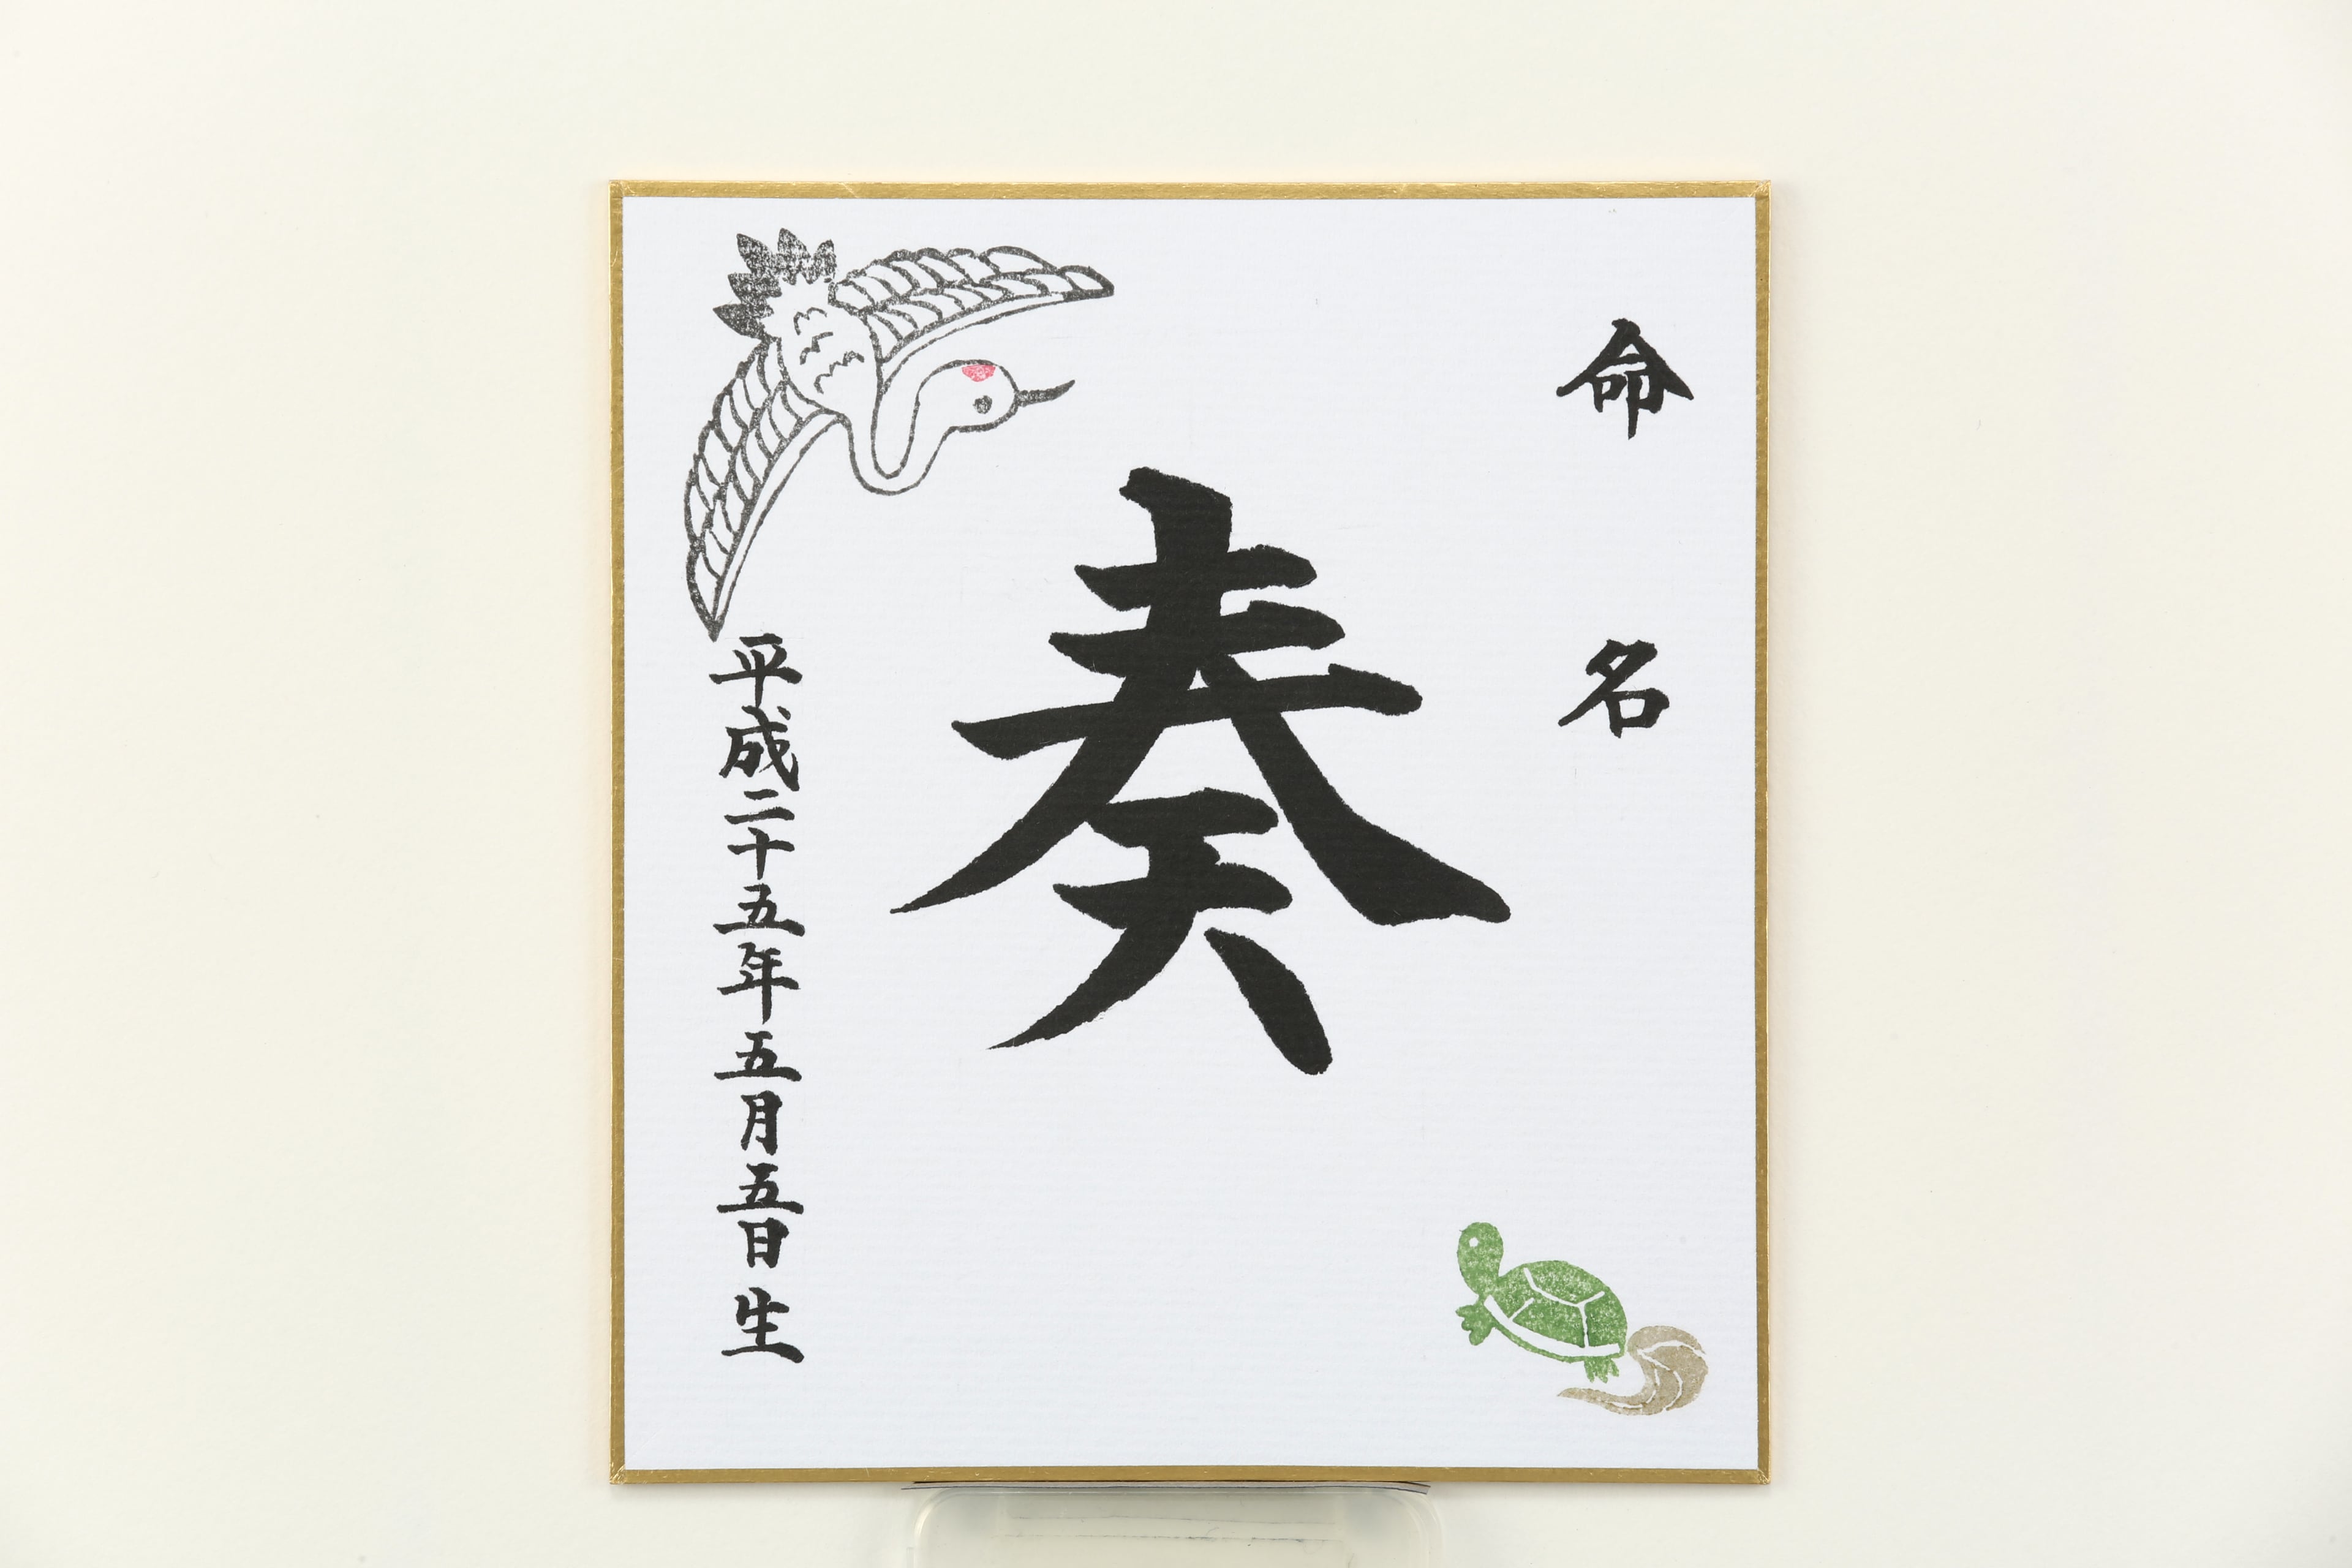 命名
奏
平成二十五年五月五日生